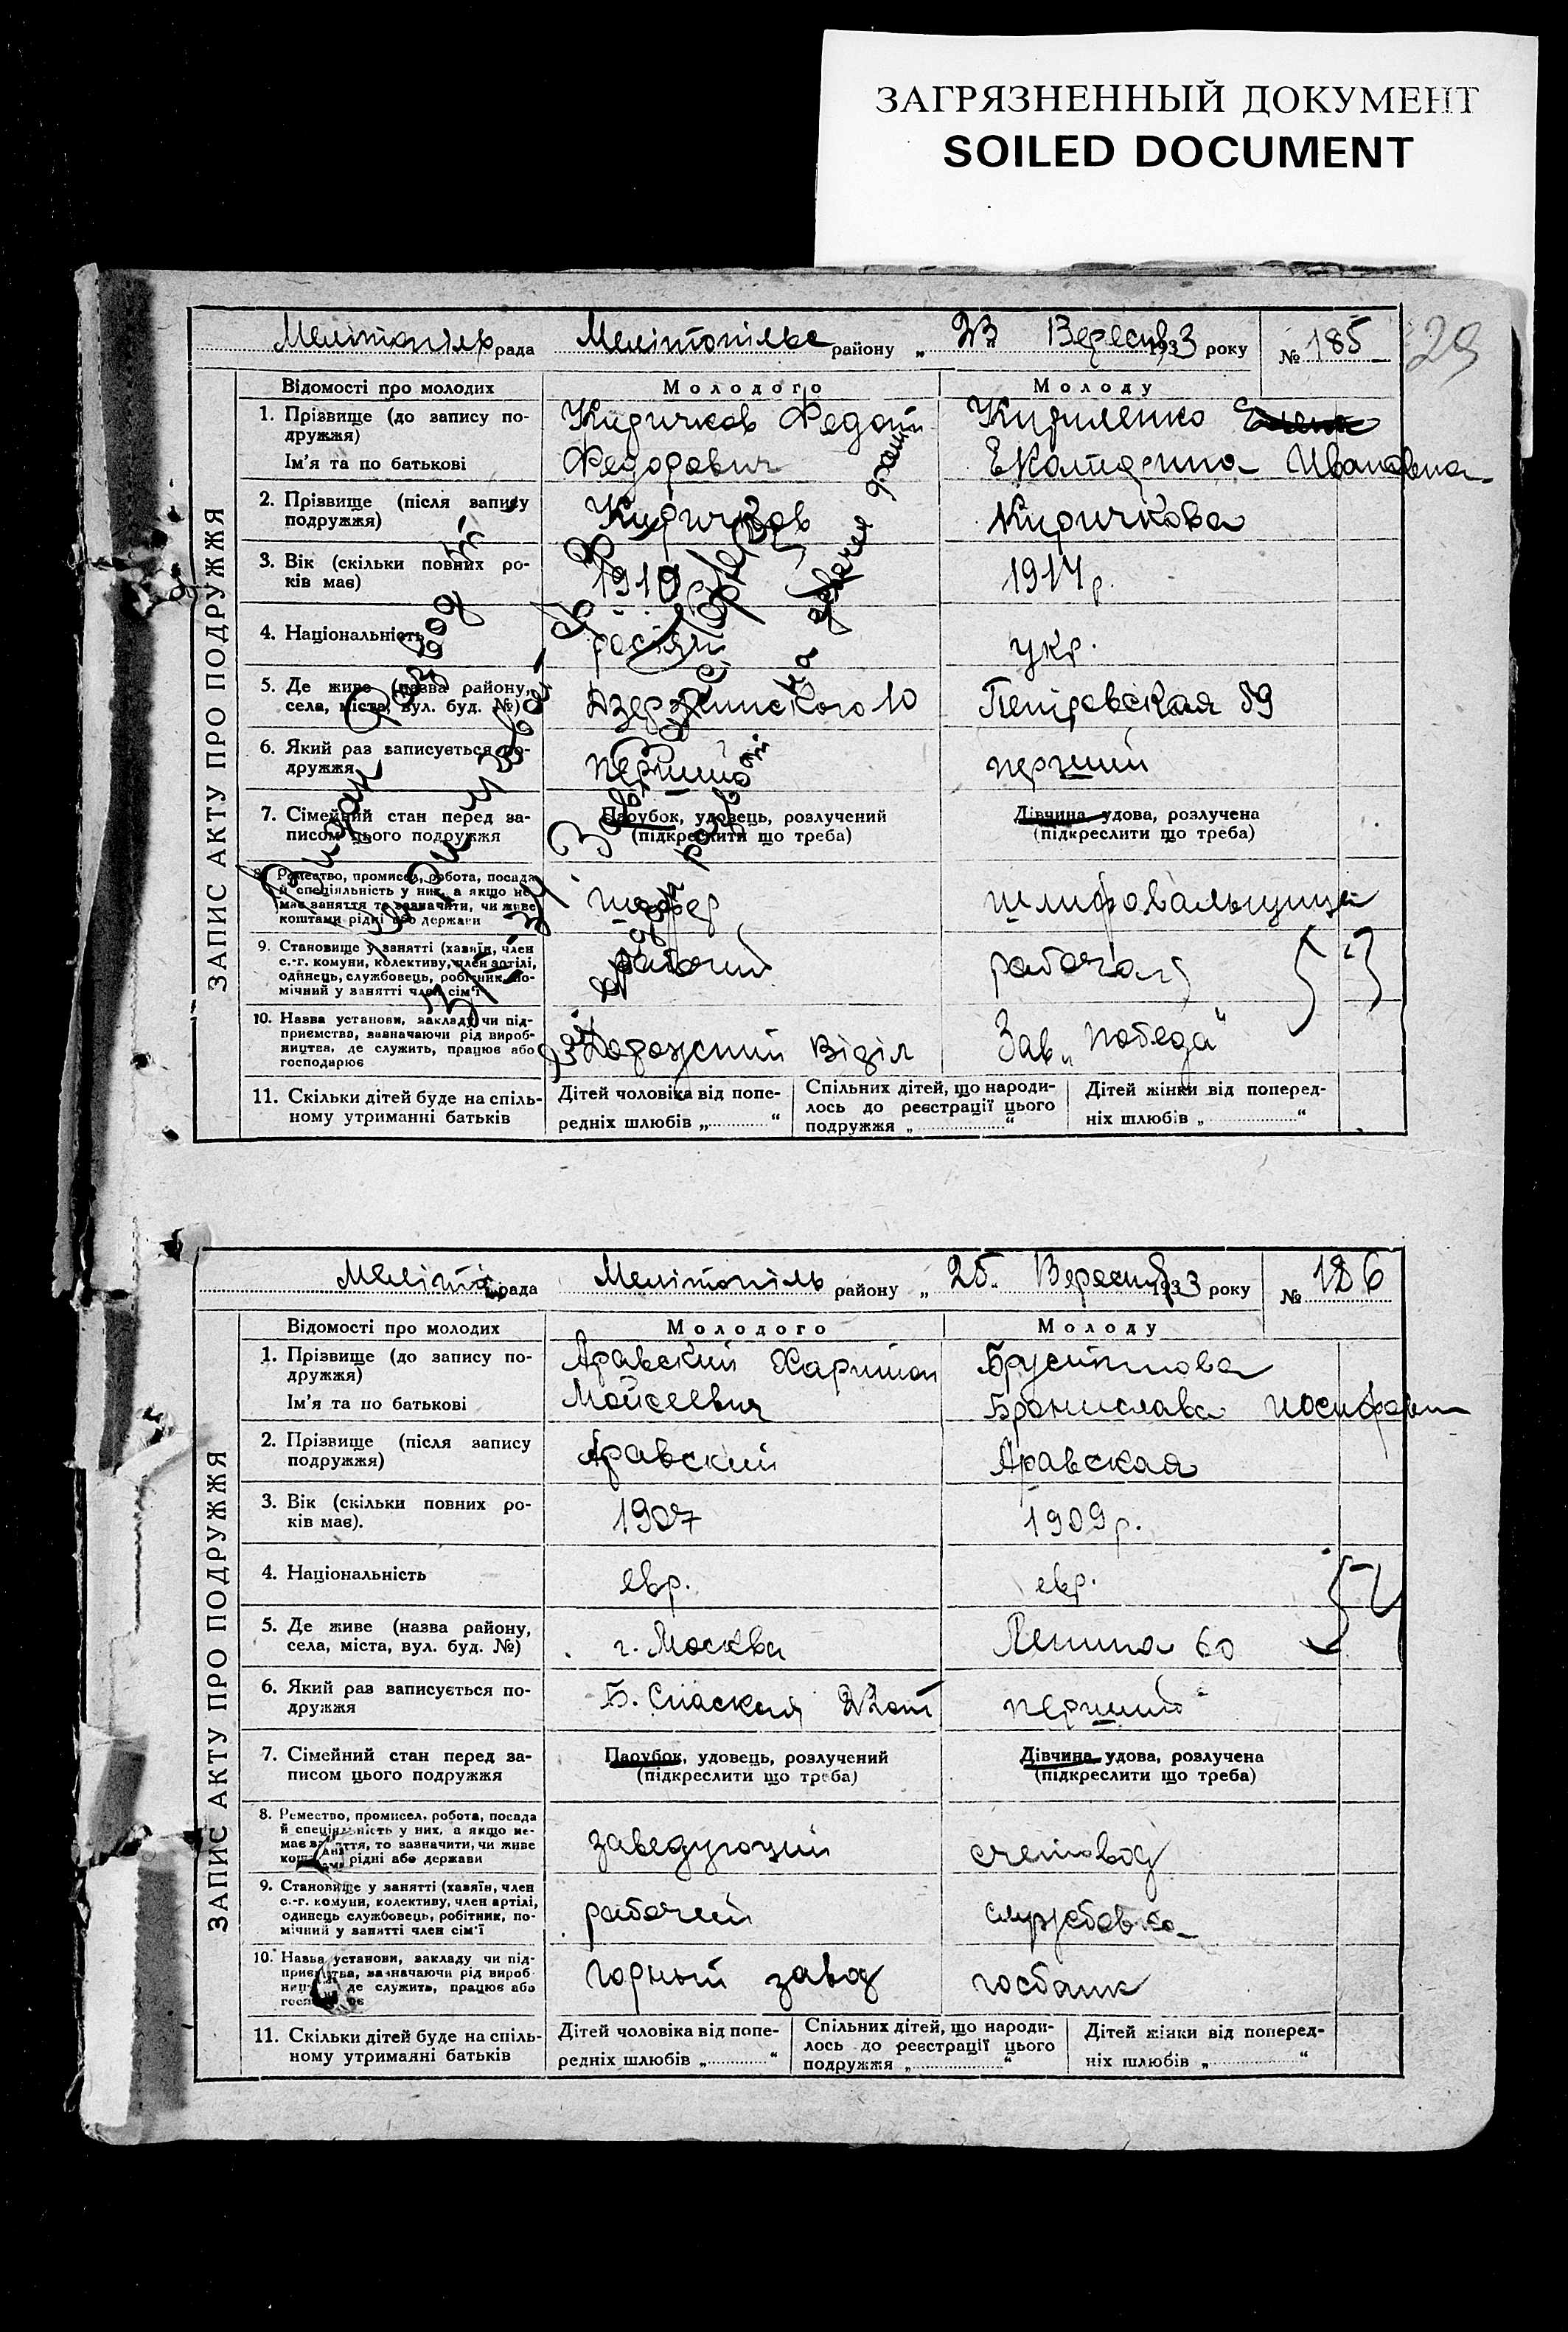 ЗАГРЯЗНЕННЫЙ ДОКУМЕНТ
SOILED DOCUMENT
29
рада Мелітопільс району „ 23 " Вересня 1933 року № 185
ЗАПИС АКТУ ПРО ПОДРУЖЖЯ
Відомості про молодих Молодого Молоду
1. Прізвище (до запису по- Киричков Федот Кириленко
дружжя)
Ім'я та по батькові Федорович Екатерина Ивановна
2. Прізвище (після запису Киричков Киричкова
подружжя)
3. Вік (скільки повних ро- 1910 1914 р.
ків має)
4. Національність росіян укр.
5. Де живе (назва району, Дзержинского 10 Петровская 89
села, міста, вул. буд. №)
6. Який раз записується по- перший перший
дружжя
7. Сімейний стан перед за- Парубок, удовець, розлучений Дівчина удова, розлучена
писом цього подружжя (підкреслити що треба) (підкреслити що треба)
8. Ремество, промисел, робота, посада шофер шлифовальщица
й спеціяльність у них, а якщо не
має заняття то зазначити, чи живе
коштами рідні або держави
9. Становище у занятті (хазяїн, член рабочий рабочая
с.-г. комуни, колективу, член артілі,
одинець, службовець, робітник, по-
мічний у занятті член сім'ї
10. Назва установи, закладу чи під- Дорожний Віділ Зав. „Победа"
приємства, зазначаючи рід вироб-
ництва, де служить, працює або
господарює
11. Скільки дітей буде на спіль- Дітей чоловіка від попе- Спільних дітей, що народи- Дітей жінки від поперед-
ному утриманні батьків редніх шлюбів „ “ лось до реєстрації цього ніх шлюбів „ “
подружжя „ “
рада Мелітопіль району „ 25 " Вересня 1933 року № 186
ЗАПИС АКТУ ПРО ПОДРУЖЖЯ
Відомості про молодих Молодого Молоду
1. Прізвище (до запису по- Аравский Харитон
дружжя)
Ім'я та по батькові Мойсеевич Бронислава
2. Прізвище (після запису Аравский Аравская
подружжя)
3. Вік (скільки повних ро- 1907 1909 р.
ків має).
4. Національність евр. евр.
5. Де живе (назва району, г. Москва Ленина 60
села, міста, вул. буд. №)
6. Який раз записується по- Б. Спаская перший
дружжя
7. Сімейний стан перед за- Парубок, удовець, розлучений Дівчина удова, розлучена
писом цього подружжя (підкреслити що треба) (підкреслити що треба)
8. Ремество, промисел, робота, посада заведующий счетовод
й спеціяльність у них, а якщо не-
має заняття, то зазначити, чи живе
коштами рідні або держави
9. Становище у занятті (хазяїн, член рабочий службовка
с.-г. комуни, колективу, член артілі,
одинець службовець, робітник, по-
мічний у занятті член сім'ї
10. Назва установи, закладу чи під- горный завод госбанк
приємства, зазначаючи рід вироб-
ництва де служить, працює або
господарює
11. Скільки дітей буде на спіль- Дітей чоловіка від попе- Спільних дітей, що народи- Дітей жінки від поперед-
ному утриманні батьків редніх шлюбів „ “ лось до реєстрації цього ніх шлюбів „ “
подружжя „ “